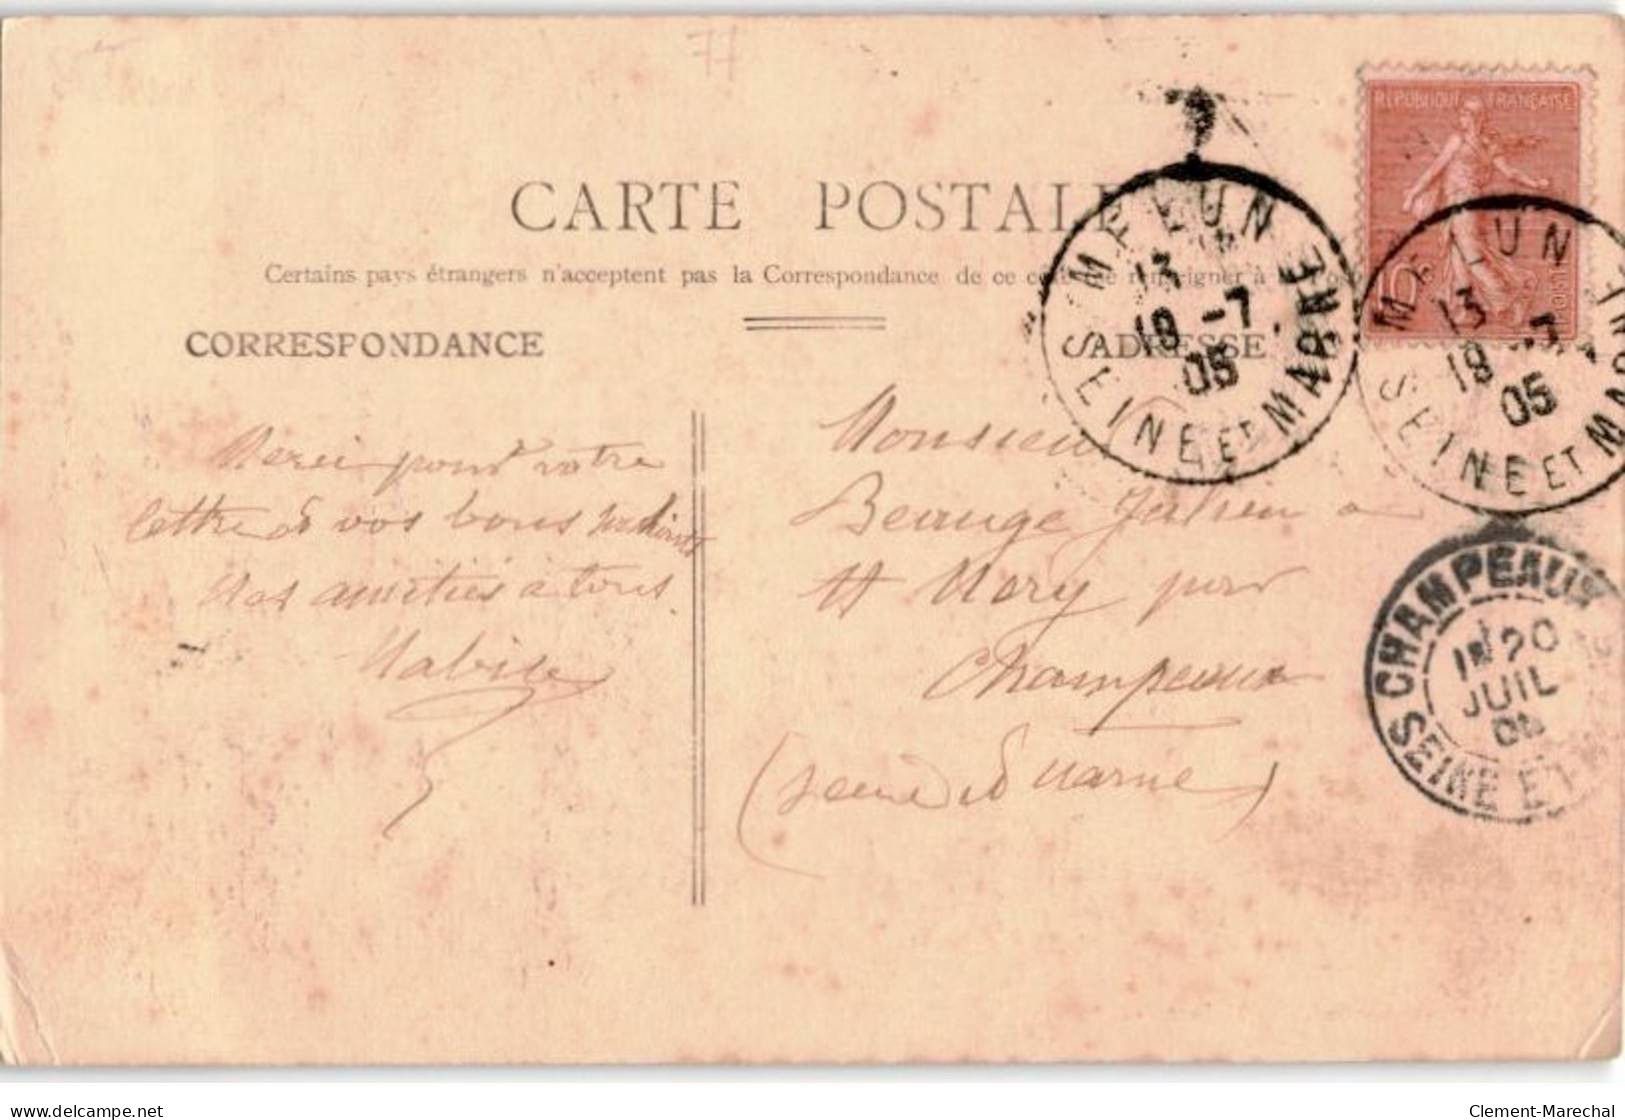 77
RÉPUBLIQUE FRANÇAISE
10
CARTE POSTALE
Certains pays étrangers n'acceptent pas la Correspondance de ce renseigner à
CORRESPONDANCE
ADRESSE
MELUN
13
19 -7
05
SEINE ET MARNE
MELUN
13
19 -7
05
SEINE ET MARNE
Merci pour votre
lettre & vos bons
Nos amitiés à tous.
Monsieur
Beauge Julien a
St Mery par
Champeaux
(Seine & Marne)
CHAMPEAUX
20
JUIL
05
SEINE ET M
delcampe.net
Clement-Marechal